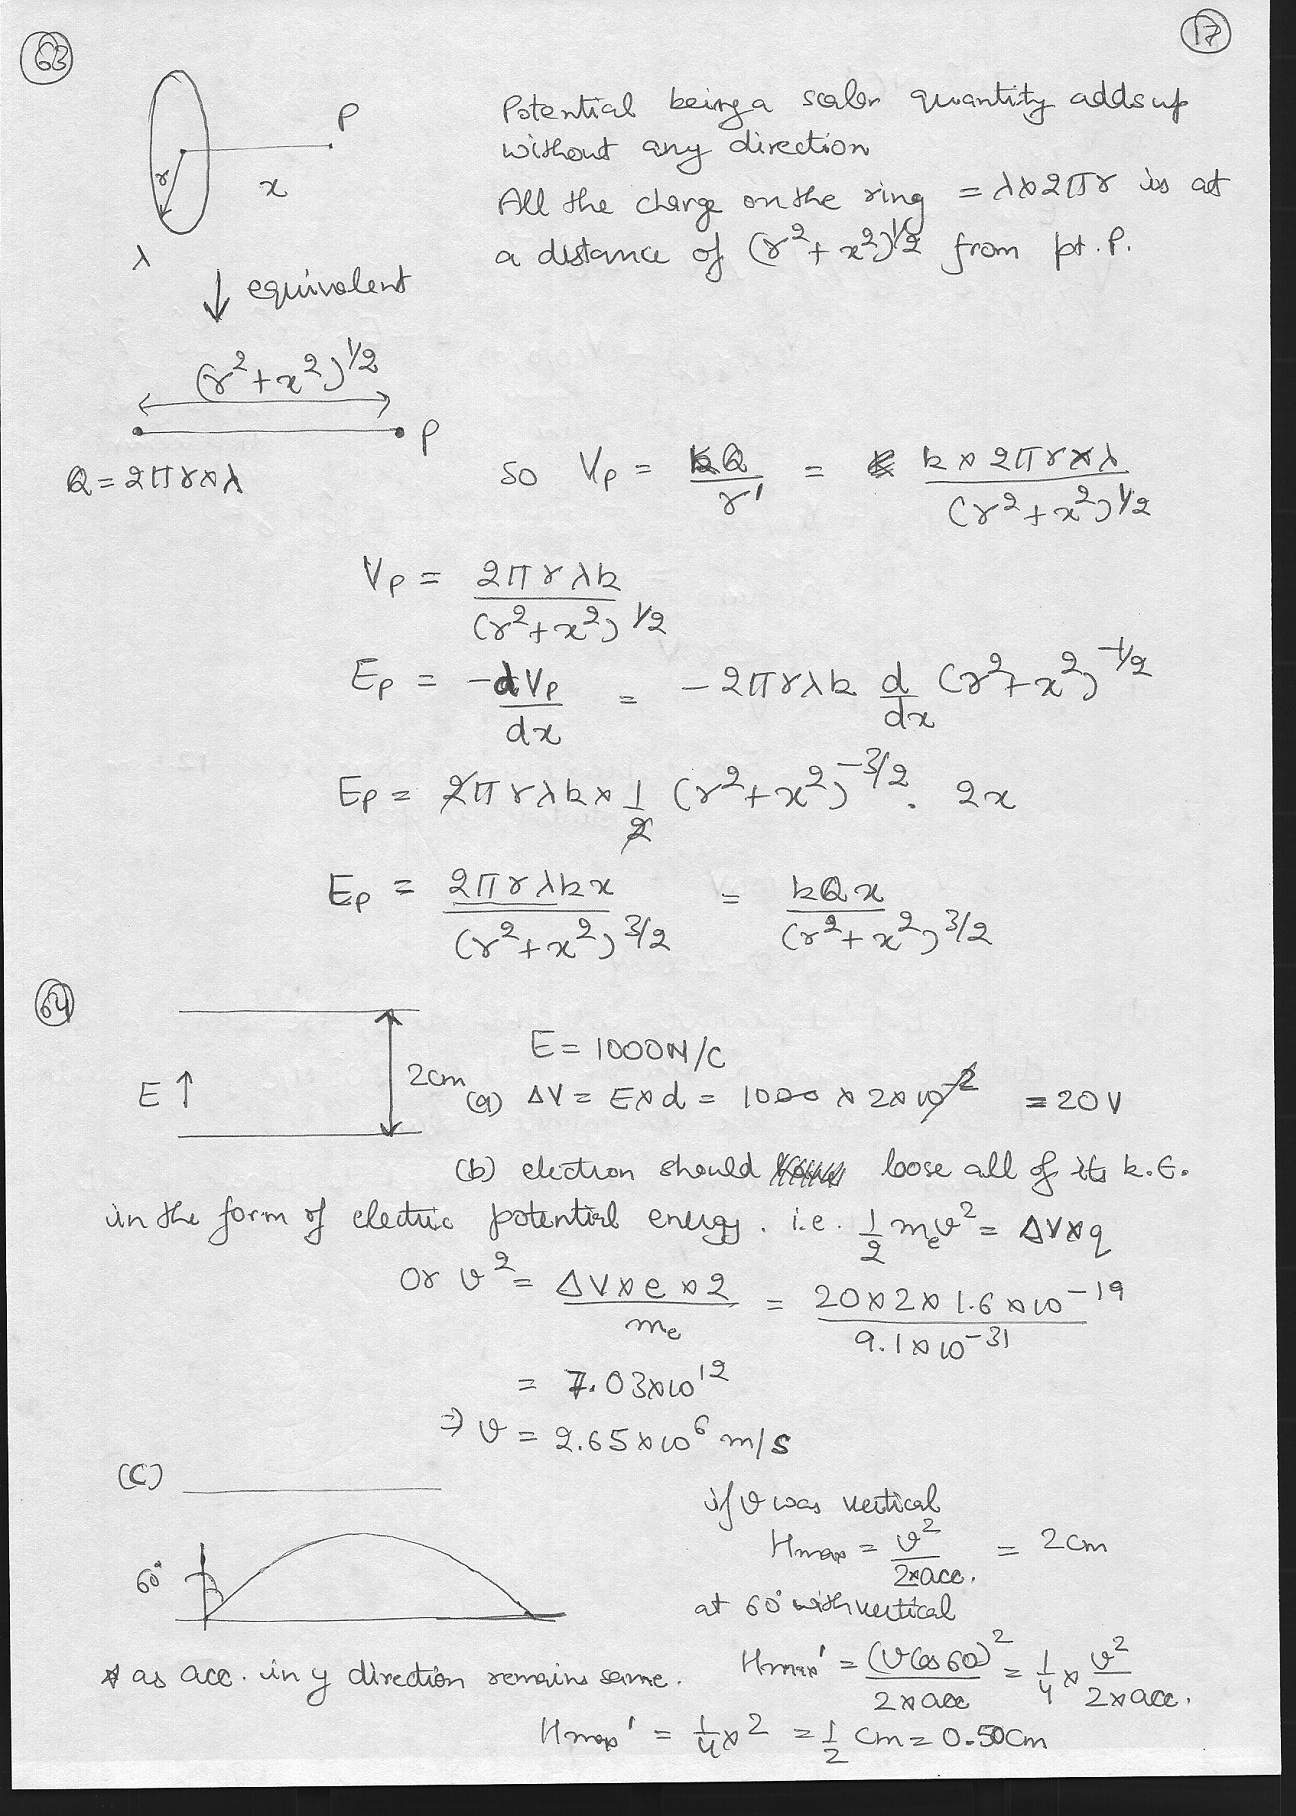 63
17
P
r
x
λ
Potential being a scaler quantity adds up
without any direction
All the charge on the ring = λ×2πr is at
a distance of (r²+x²)^1/2 from pt. P.
↓ equivalent
(r²+x²)^1/2
P
Q = 2πr×λ
so Vp = kQ/r' = k × 2πr×λ/(r²+x²)^1/2
Vp = 2πrλk/(r²+x²)^1/2
Ep = -dVp/dx = -2πrλk d/dx (r²+x²)^-1/2
Ep = 2πrλk × 1/2 (r²+x²)^-3/2 . 2x
Ep = 2πrλkx/(r²+x²)^3/2 = kQx/(r²+x²)^3/2
64
E ↑
2cm
E = 1000N/C
(a) ΔV = E×d = 1000 × 2×10^-2 = 20V
(b) electron should loose all of its k.E.
in the form of electric potential energy. i.e. 1/2 mₑv² = ΔV×q
or v² = ΔV×e×2/mₑ = 20×2×1.6×10^-19/9.1×10^-31
= 7.03×10^12
⇒ v = 2.65×10^6 m/s
(C)
60°
if v was vertical
Hmax = v²/2×acc. = 2cm
at 60° with vertical
as acc. in y direction remains same.
Hmax' = (v cos 60)²/2×acc = 1/4 × v²/2×acc.
Hmax' = 1/4×2 = 1/2 cm = 0.50cm